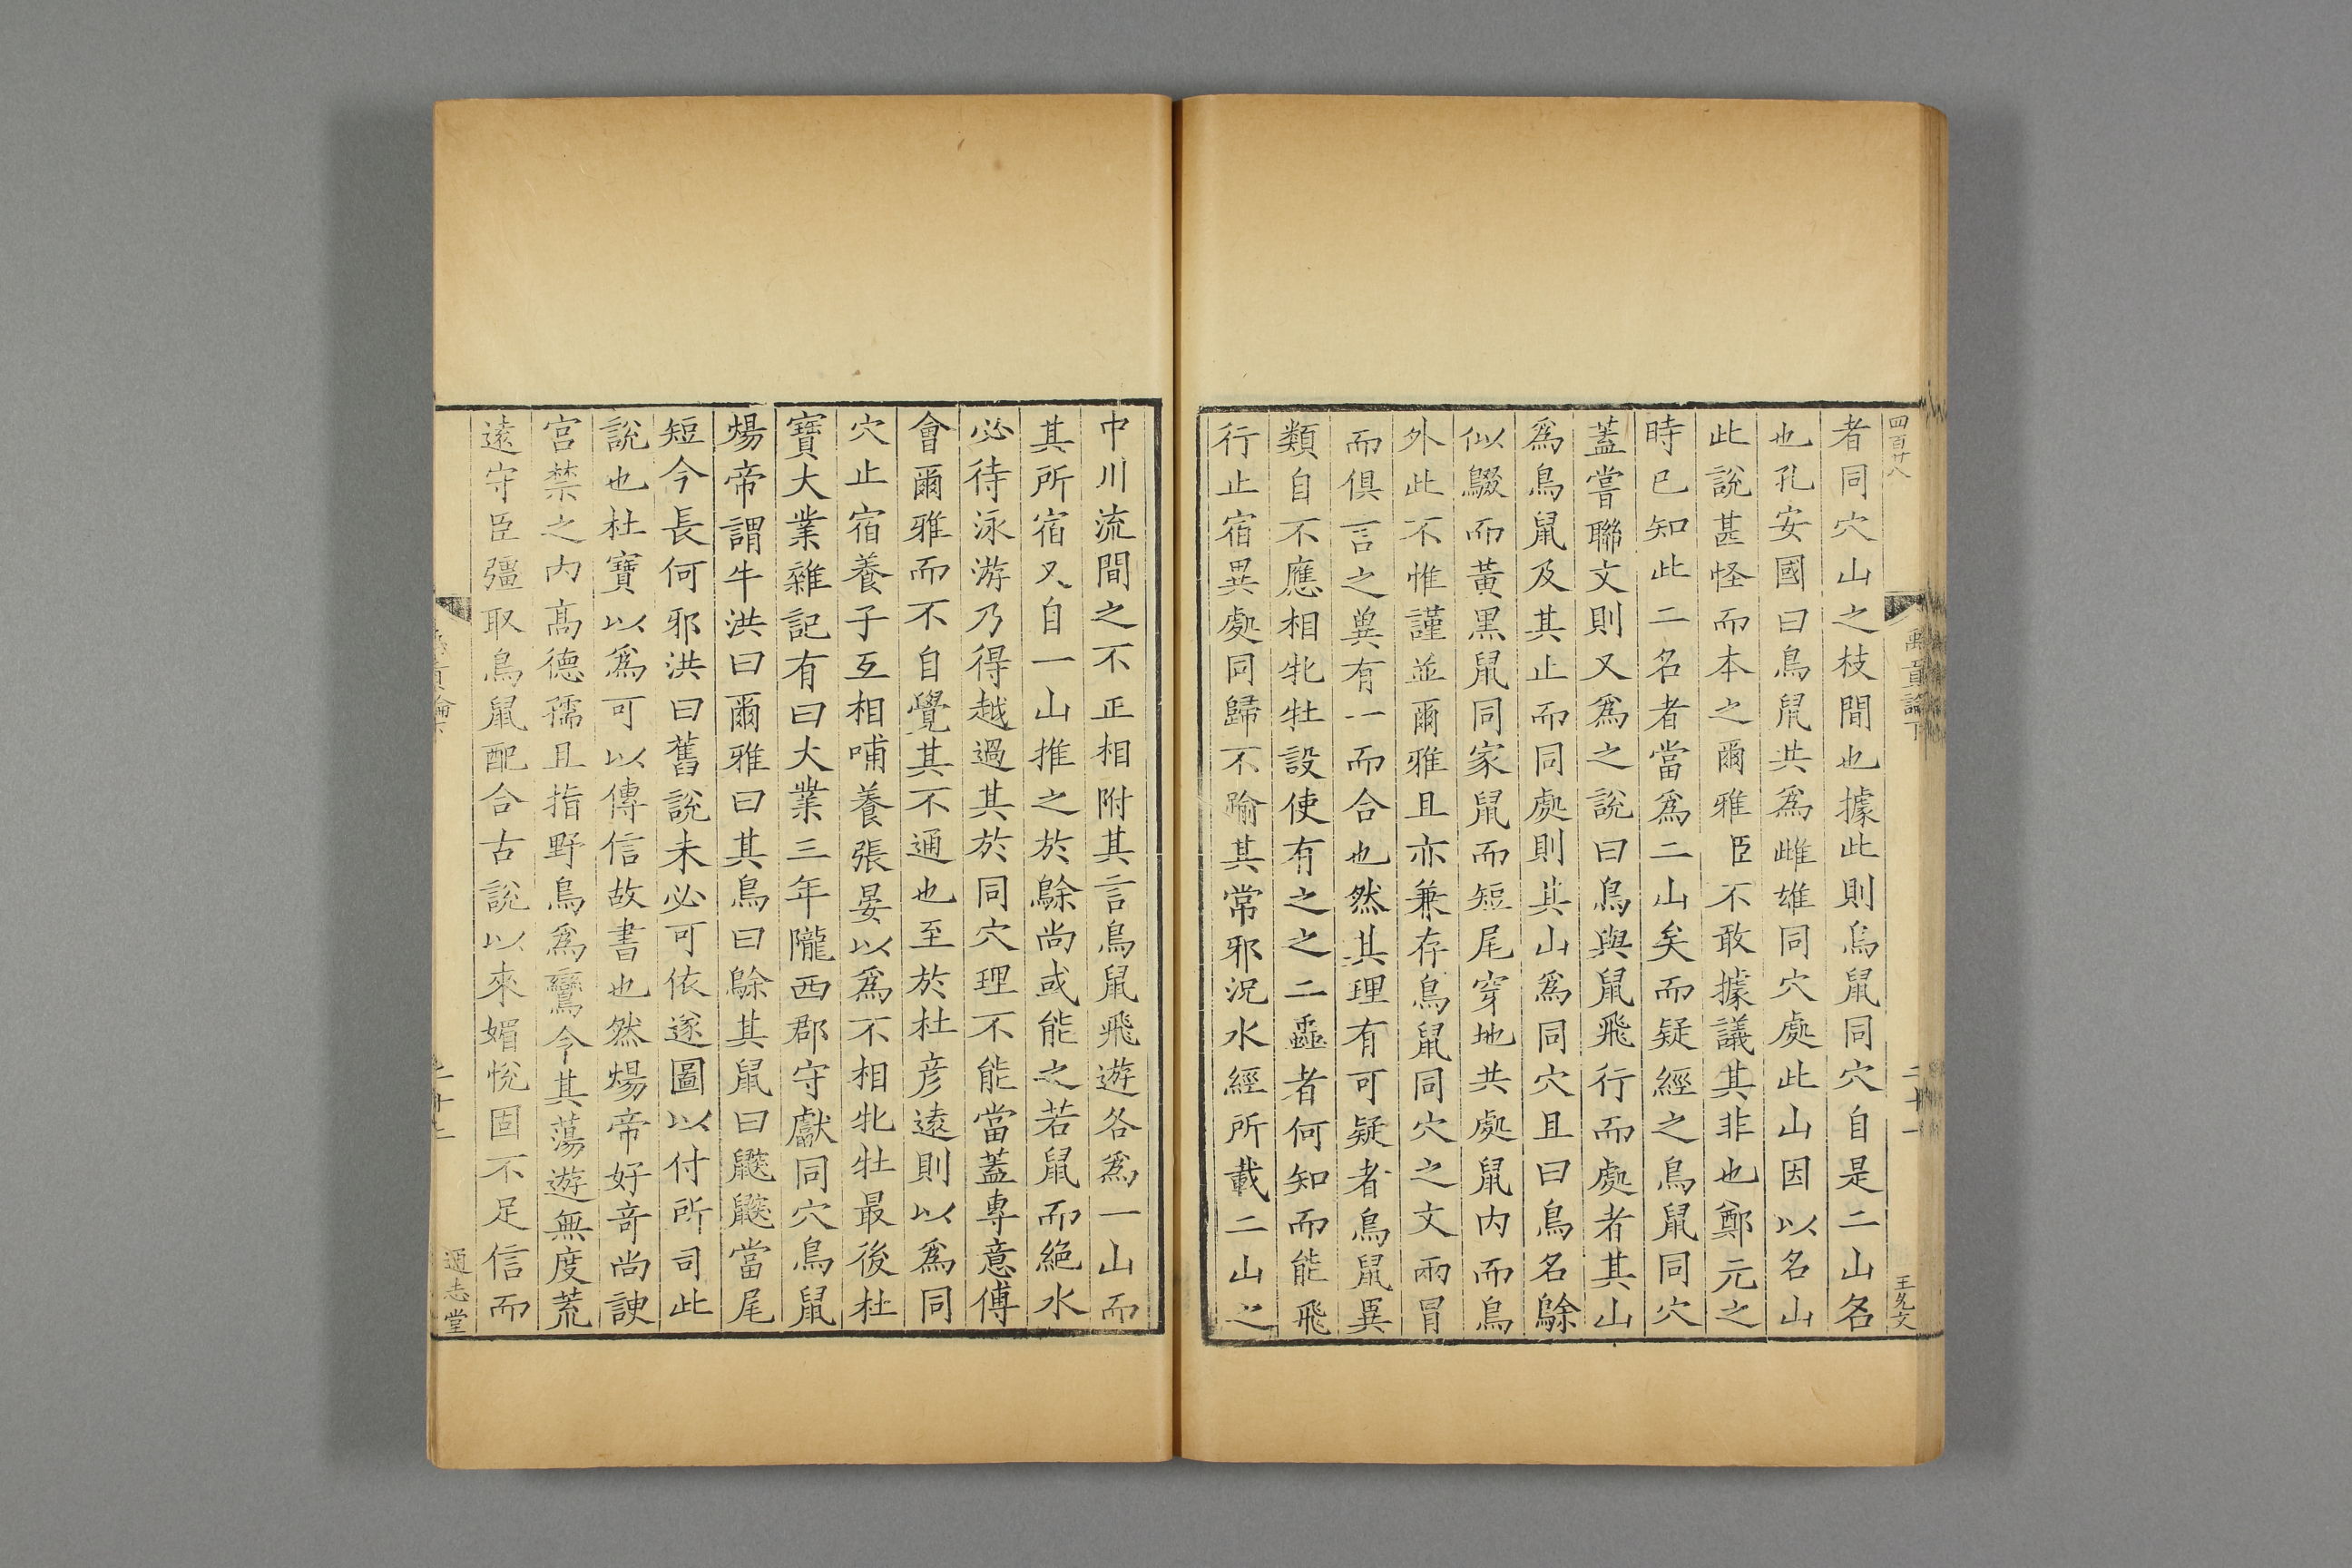 四百廿八
禹貢論下
二十一
王允文
者同穴山之枝間也據此則鳥鼠同穴自是二山名
也孔安國曰鳥鼠共為雌雄同穴處此山因以名山
此說甚怪而本之爾雅臣不敢據議其非也鄭元之
時已知此二名者當為二山矣而疑經之鳥鼠同穴
蓋嘗聯文則又為之說曰鳥與鼠飛行而處者其山
為鳥鼠及其止而同處則其山為同穴且曰鳥名鵌
似鵽而黃黑鼠同家鼠而短尾穿地共處鼠內而鳥
外此不惟謹並爾雅且亦兼存鳥鼠同穴之文兩冒
而俱言之兾有一而合也然其理有可疑者鳥鼠異
類自不應相牝牡設使有之之二蟲者何知而能飛
行止宿異處同歸不踰其常邪況水經所載二山之
中川流間之不正相附其言鳥鼠飛遊各為一山而
其所宿又自一山推之於鵌尚或能之若鼠而絕水
必待泳游乃得越過其於同穴理不能當蓋專意傅
會爾雅而不自覺其不通也至於杜彥遠則以為同
穴止宿養子互相哺養張晏以為不相牝牡最後杜
寶大業雜記有曰大業三年隴西郡守獻同穴鳥鼠
煬帝謂牛洪曰爾雅曰其鳥曰鵌其鼠曰鼵鼵當尾
短今長何邪洪曰舊說未必可依遂圖以付所司此
說也杜寶以為可以傳信故書也然煬帝好竒尚諛
宮禁之內髙德孺且指野鳥為鸞今其蕩遊無度荒
遠守臣彊取鳥鼠配合古說以來媚悅固不足信而
通志堂